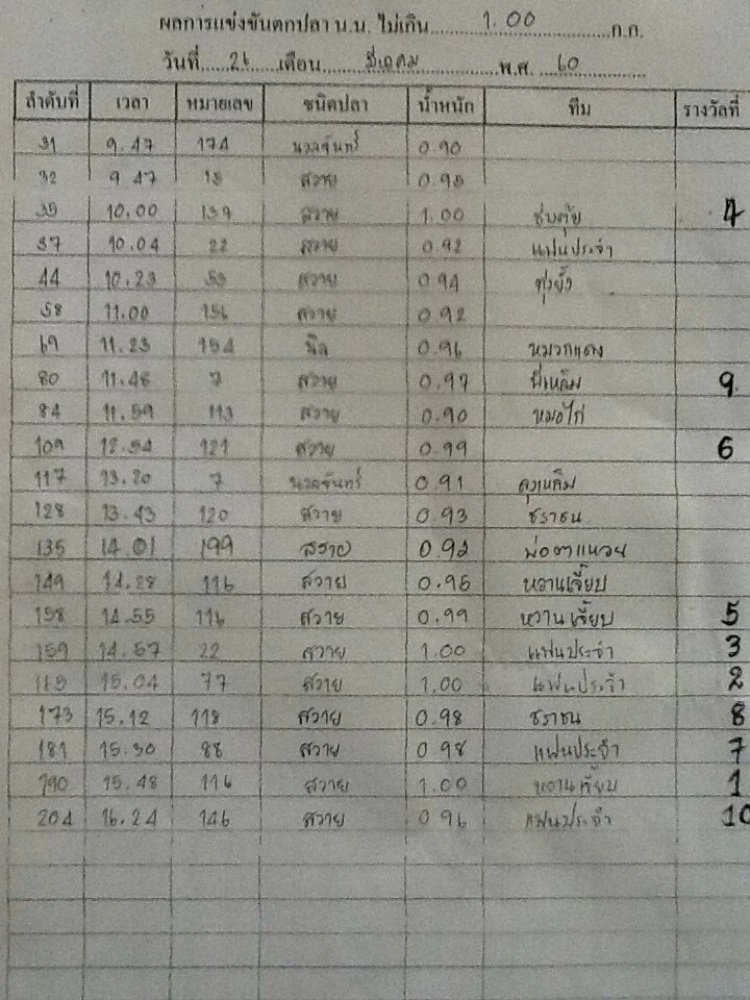 ผลการแข่งขันตกปลา น.น. ไม่เกิน 1.00 ก.ก.
วันที่ 26 เดือน มีนาคม พ.ศ. 60
ลำดับที่ เวลา หมายเลข ชนิดปลา น้ำหนัก ทีม รางวัลที่
31 9.47 174 นวลจันทร์ 0.90
32 9.47 สวาย 0.95
35 10.00 139 สวาย 1.00 4
37 10.04 22 สวาย 0.92 แฟนประจำ
44 10.23 สวาย 0.94 ทุ่งยั้ง
58 11.00 156 สวาย 0.92
69 11.23 154 นิล 0.96 หมวกแดง
80 11.46 7 สวาย 0.97 9
84 11.59 113 สวาย 0.90 หมอไก่
109 12.54 121 สวาย 0.99 6
117 13.20 7 นวลจันทร์ 0.91 ลุงเหลิม
128 13.43 120 สวาย 0.93 ชราชน
135 14.01 199 สวาย 0.92 พ่อตาแหวน
149 14.28 116 สวาย 0.95 หวานเจี๊ยบ
158 14.55 116 สวาย 0.99 หวานเจี๊ยบ 5
159 14.57 22 สวาย 1.00 แฟนประจำ 3
165 15.04 77 สวาย 1.00 แฟนประจำ 2
173 15.12 118 สวาย 0.98 ชราชน 8
181 15.30 88 สวาย 0.98 แฟนประจำ 7
190 15.48 116 สวาย 1.00 หวานเจี๊ยบ 1
204 16.24 146 สวาย 0.96 แฟนประจำ 10